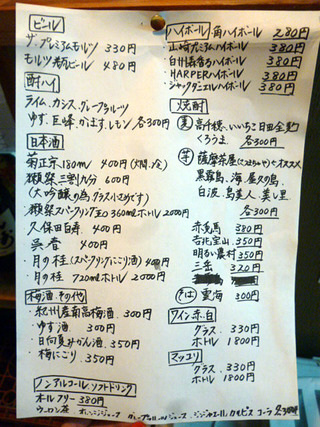 ビール
ザ・プレミアムモルツ 330円
モルツ 瓶ビール 480円
酎ハイ
ライム、カシス、グレープフルーツ
ゆず、巨峰、かぼす、レモン 各300円
日本酒
菊正宗180ml 400円(大関、冷)
獺祭 三割九分 600円
(大吟醸の為、グラス小さめです)
獺祭スパークリング 360mlボトル 2000円
久保田百寿 400円
呉春 400円
・月の桂(スパークリングにごり酒)400円
・月の桂 720mlボトル 2000円
梅酒、その他
・紀州産南高梅酒 300円
・ゆず酒 300円
・日向夏みかん酒 350円
・梅にごり 350円
ノンアルコール、ソフトドリンク
オールフリー 380円
ウーロン茶 オレンジジュース グレープフルーツジュース ジンジャエール カルピス コーラ 各300円
ハイボール 角ハイボール 280円
・山崎プレミアムハイボール 380円
・白州森香るハイボール 380円
・HARPERハイボール 380円
・ジャックダニエルハイボール 380円
焼酎
麦 高千穂、いいちこ日田全麹
くろうま 各300円
芋 薩摩茶屋 オススメ
黒霧島、海、屋久の島
白波、島美人、美し里
各300円
赤兎馬 380円
吉兆宝山 350円
明るい農村 350円
三岳 320円
そば 雲海 300円
ワイン 赤、白
グラス 330円
ボトル 1800円
マッコリ
グラス 330円
ボトル 1800円